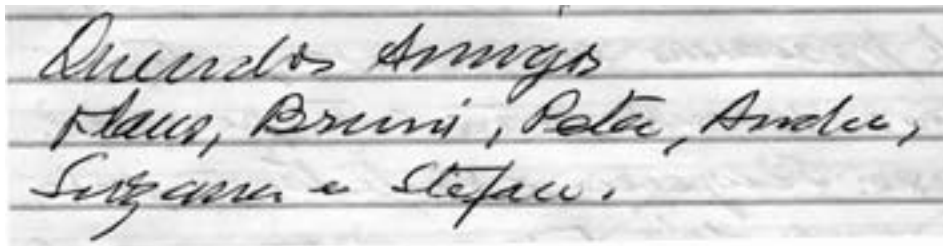 Queridos Amigos
Klaus, Bruni, Peter, Andre,
Suzana e Stefan.